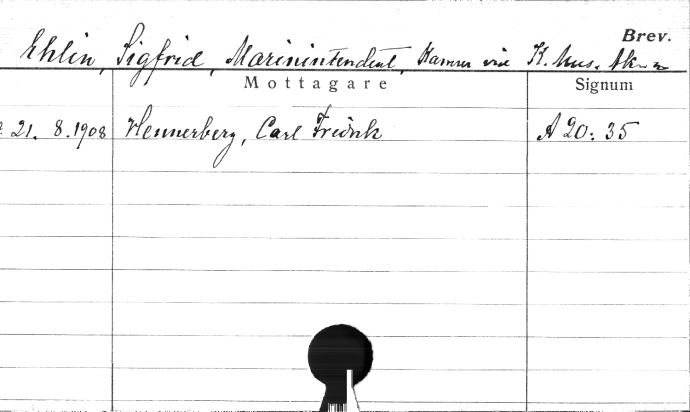 Brev.
Ehlin, Sigfrid, Marinintendent, Kamrer vid K. Mus. Ak
Mottagare Signum
21. 8. 1908 Hennerberg, Carl Fredrik A 20: 35